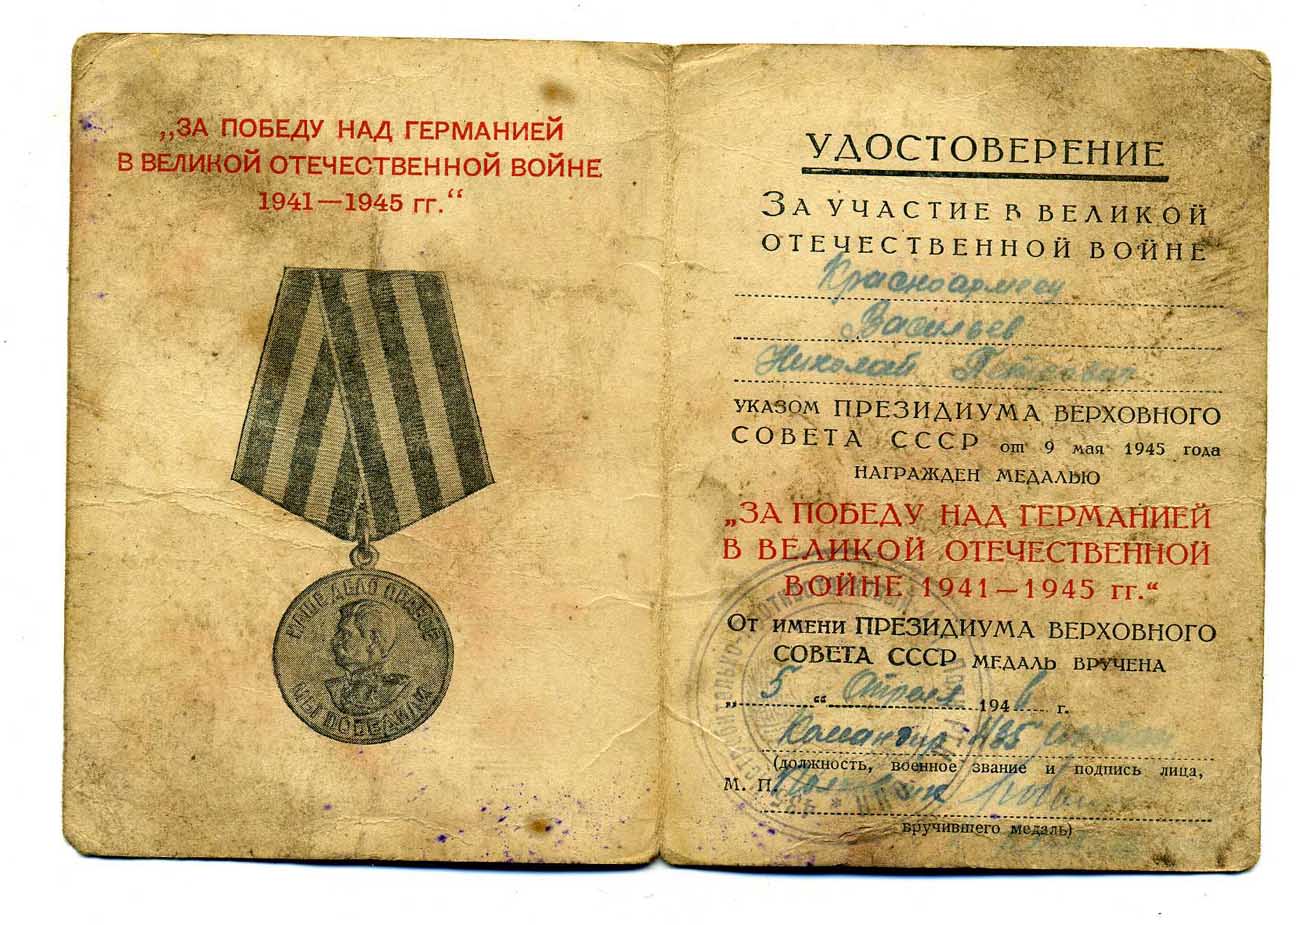 „ЗА ПОБЕДУ НАД ГЕРМАНИЕЙ
В ВЕЛИКОЙ ОТЕЧЕСТВЕННОЙ ВОЙНЕ
1941—1945 гг.“
НАШЕ ДЕЛО ПРАВОЕ
МЫ ПОБЕДИЛИ
УДОСТОВЕРЕНИЕ
ЗА УЧАСТИЕ В ВЕЛИКОЙ
ОТЕЧЕСТВЕННОЙ ВОЙНЕ
Красноармеец
Васильев
Николай Петрович
УКАЗОМ ПРЕЗИДИУМА ВЕРХОВНОГО
СОВЕТА СССР от 9 мая 1945 года
НАГРАЖДЕН МЕДАЛЬЮ
„ЗА ПОБЕДУ НАД ГЕРМАНИЕЙ
В ВЕЛИКОЙ ОТЕЧЕСТВЕННОЙ
ВОЙНЕ 1941—1945 гг.“
ОТ ИМЕНИ ПРЕЗИДИУМА ВЕРХОВНОГО
СОВЕТА СССР МЕДАЛЬ ВРУЧЕНА
„5“ Апреля 1946 г.
Командир 435
(должность, военное звание и подпись лица,
М. П. Полковник
вручившего медаль)